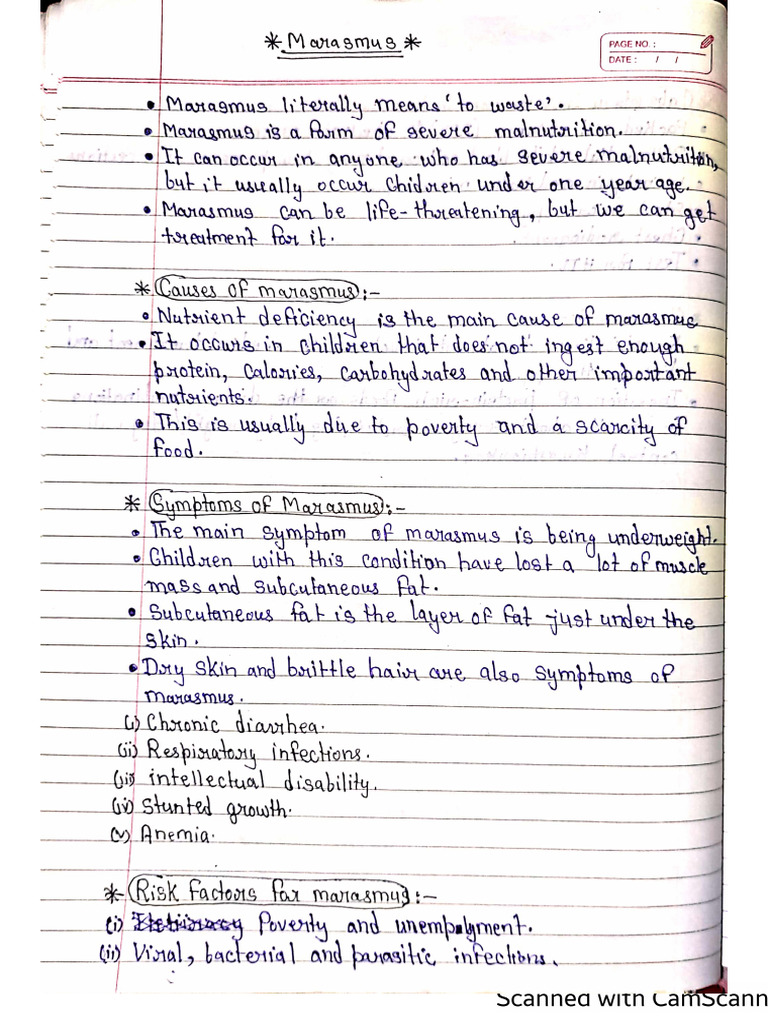 * Marasmus *
PAGE NO. :
DATE : / /
• Marasmus literally means 'to waste'.
• Marasmus is a form of severe malnutrition.
• It can occur in anyone who has severe malnutrition,
but it usually occur children under one year age.
• Marasmus can be life-threatening, but we can get
treatment for it.
* Causes of marasmus :-
• Nutrient deficiency is the main cause of marasmus
• It occurs in children that does not ingest enough
protein, calories, carbohydrates and other important
nutrients.
• This is usually due to poverty and a scarcity of
food.
* Symptoms of Marasmus :-
• The main symptom of marasmus is being underweight.
• Children with this condition have lost a lot of muscle
mass and subcutaneous fat.
• Subcutaneous fat is the layer of fat just under the
skin.
• Dry skin and brittle hair are also symptoms of
marasmus.
(i) Chronic diarrhea.
(ii) Respiratory infections.
(iii) intellectual disability.
(iv) Stunted growth.
(v) Anemia.
* Risk factors for marasmus :-
(i) Poverty and unemployment.
(ii) Viral, bacterial and parasitic infections.
Scanned with CamScann